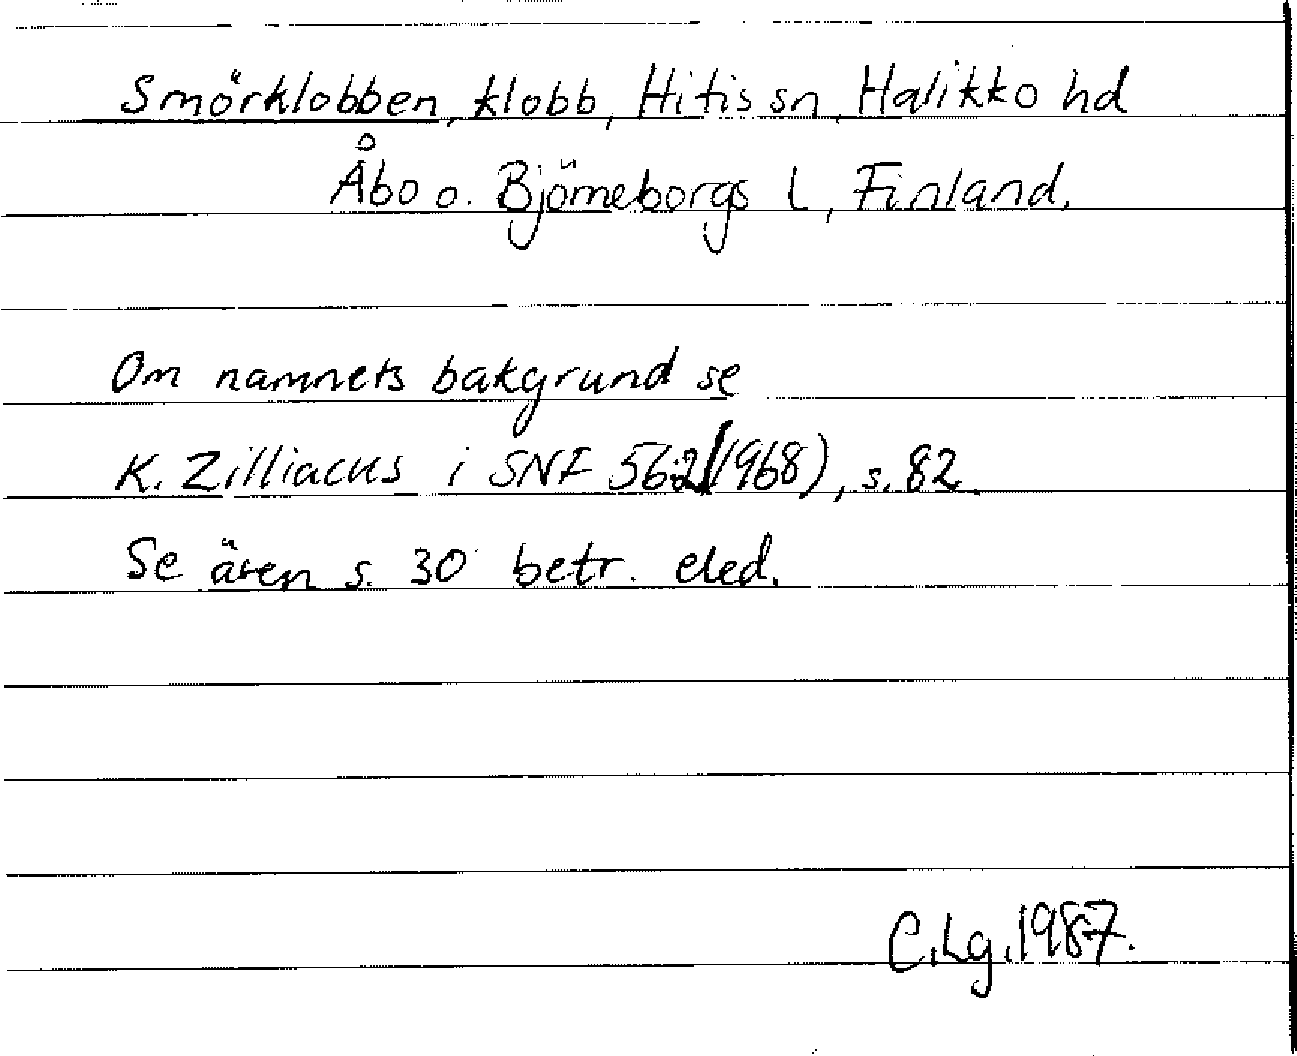 Smörklobben, klobb, Hitis sn, Halikko hd
Åbo o. Björneborgs l, Finland.
Om namnets bakgrund se
K. Zilliacus i SNF 56:2 (1968), s. 82.
Se även s. 30 betr. eled.
C.Lg.1987.